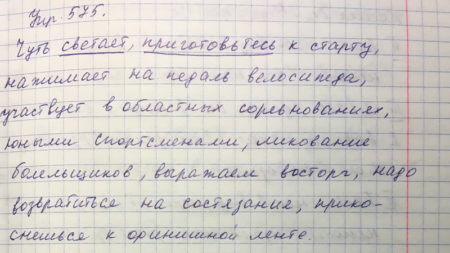 Упр. 575.
Чуть светает, приготовьтесь к старту,
нажимает на педаль велосипеда,
участвует в областных соревнованиях,
юными спортсменами, ликование
болельщиков, выражаем восторг, надо
возвратиться на состязания, прико-
снешься к финишной ленте.